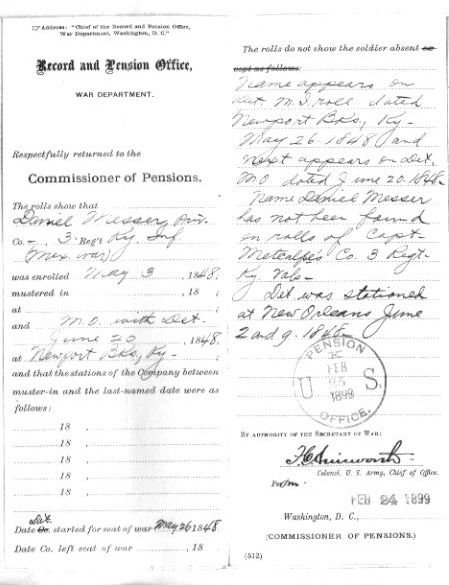 ☞Address: "Chief of the Record and Pension Office,
War Department, Washington, D. C."
Record and Pension Office,
WAR DEPARTMENT.
Respectfully returned to the
Commissioner of Pensions.
The rolls show that
Daniel Messer, Priv.
Co. –, 3 Reg't Ky. Inf.
(Mex. war)
was enrolled May 3, 1848,
mustered in , 18 ;
at ;
and M.O. with Det.
June 20, 1848,
at Newport Bks, Ky– ;
and that the stations of the Company between
muster-in and the last-named date were as
follows:
18 ,
18 ,
18 ,
18 ,
18 ,
Det.
Date Co. started for seat of war May 26 1848.
Date Co. left seat of war , 18 .
The rolls do not show the soldier absent ex-
cept as follows:
Name appears on
det. M.I. roll dated
Newport Bks, Ky–
May 26. 1848 and
next appears on Det.
M.O. dated June 20. 1848–
Name Daniel Messer
has not been found
on rolls of Capt
Metcalfes Co. 3 Regt.
Ky. Vols–
Det was stationed
at New Orleans June
2 and 9. 1848–
PENSION
K
FEB
25
U S.
1899
OFFICE.
BY AUTHORITY OF THE SECRETARY OF WAR:
F C Ainsworth
Colonel, U. S. Army, Chief of Office.
FEB 24 1899
Washington, D. C.,
(COMMISSIONER OF PENSIONS.)
(512)